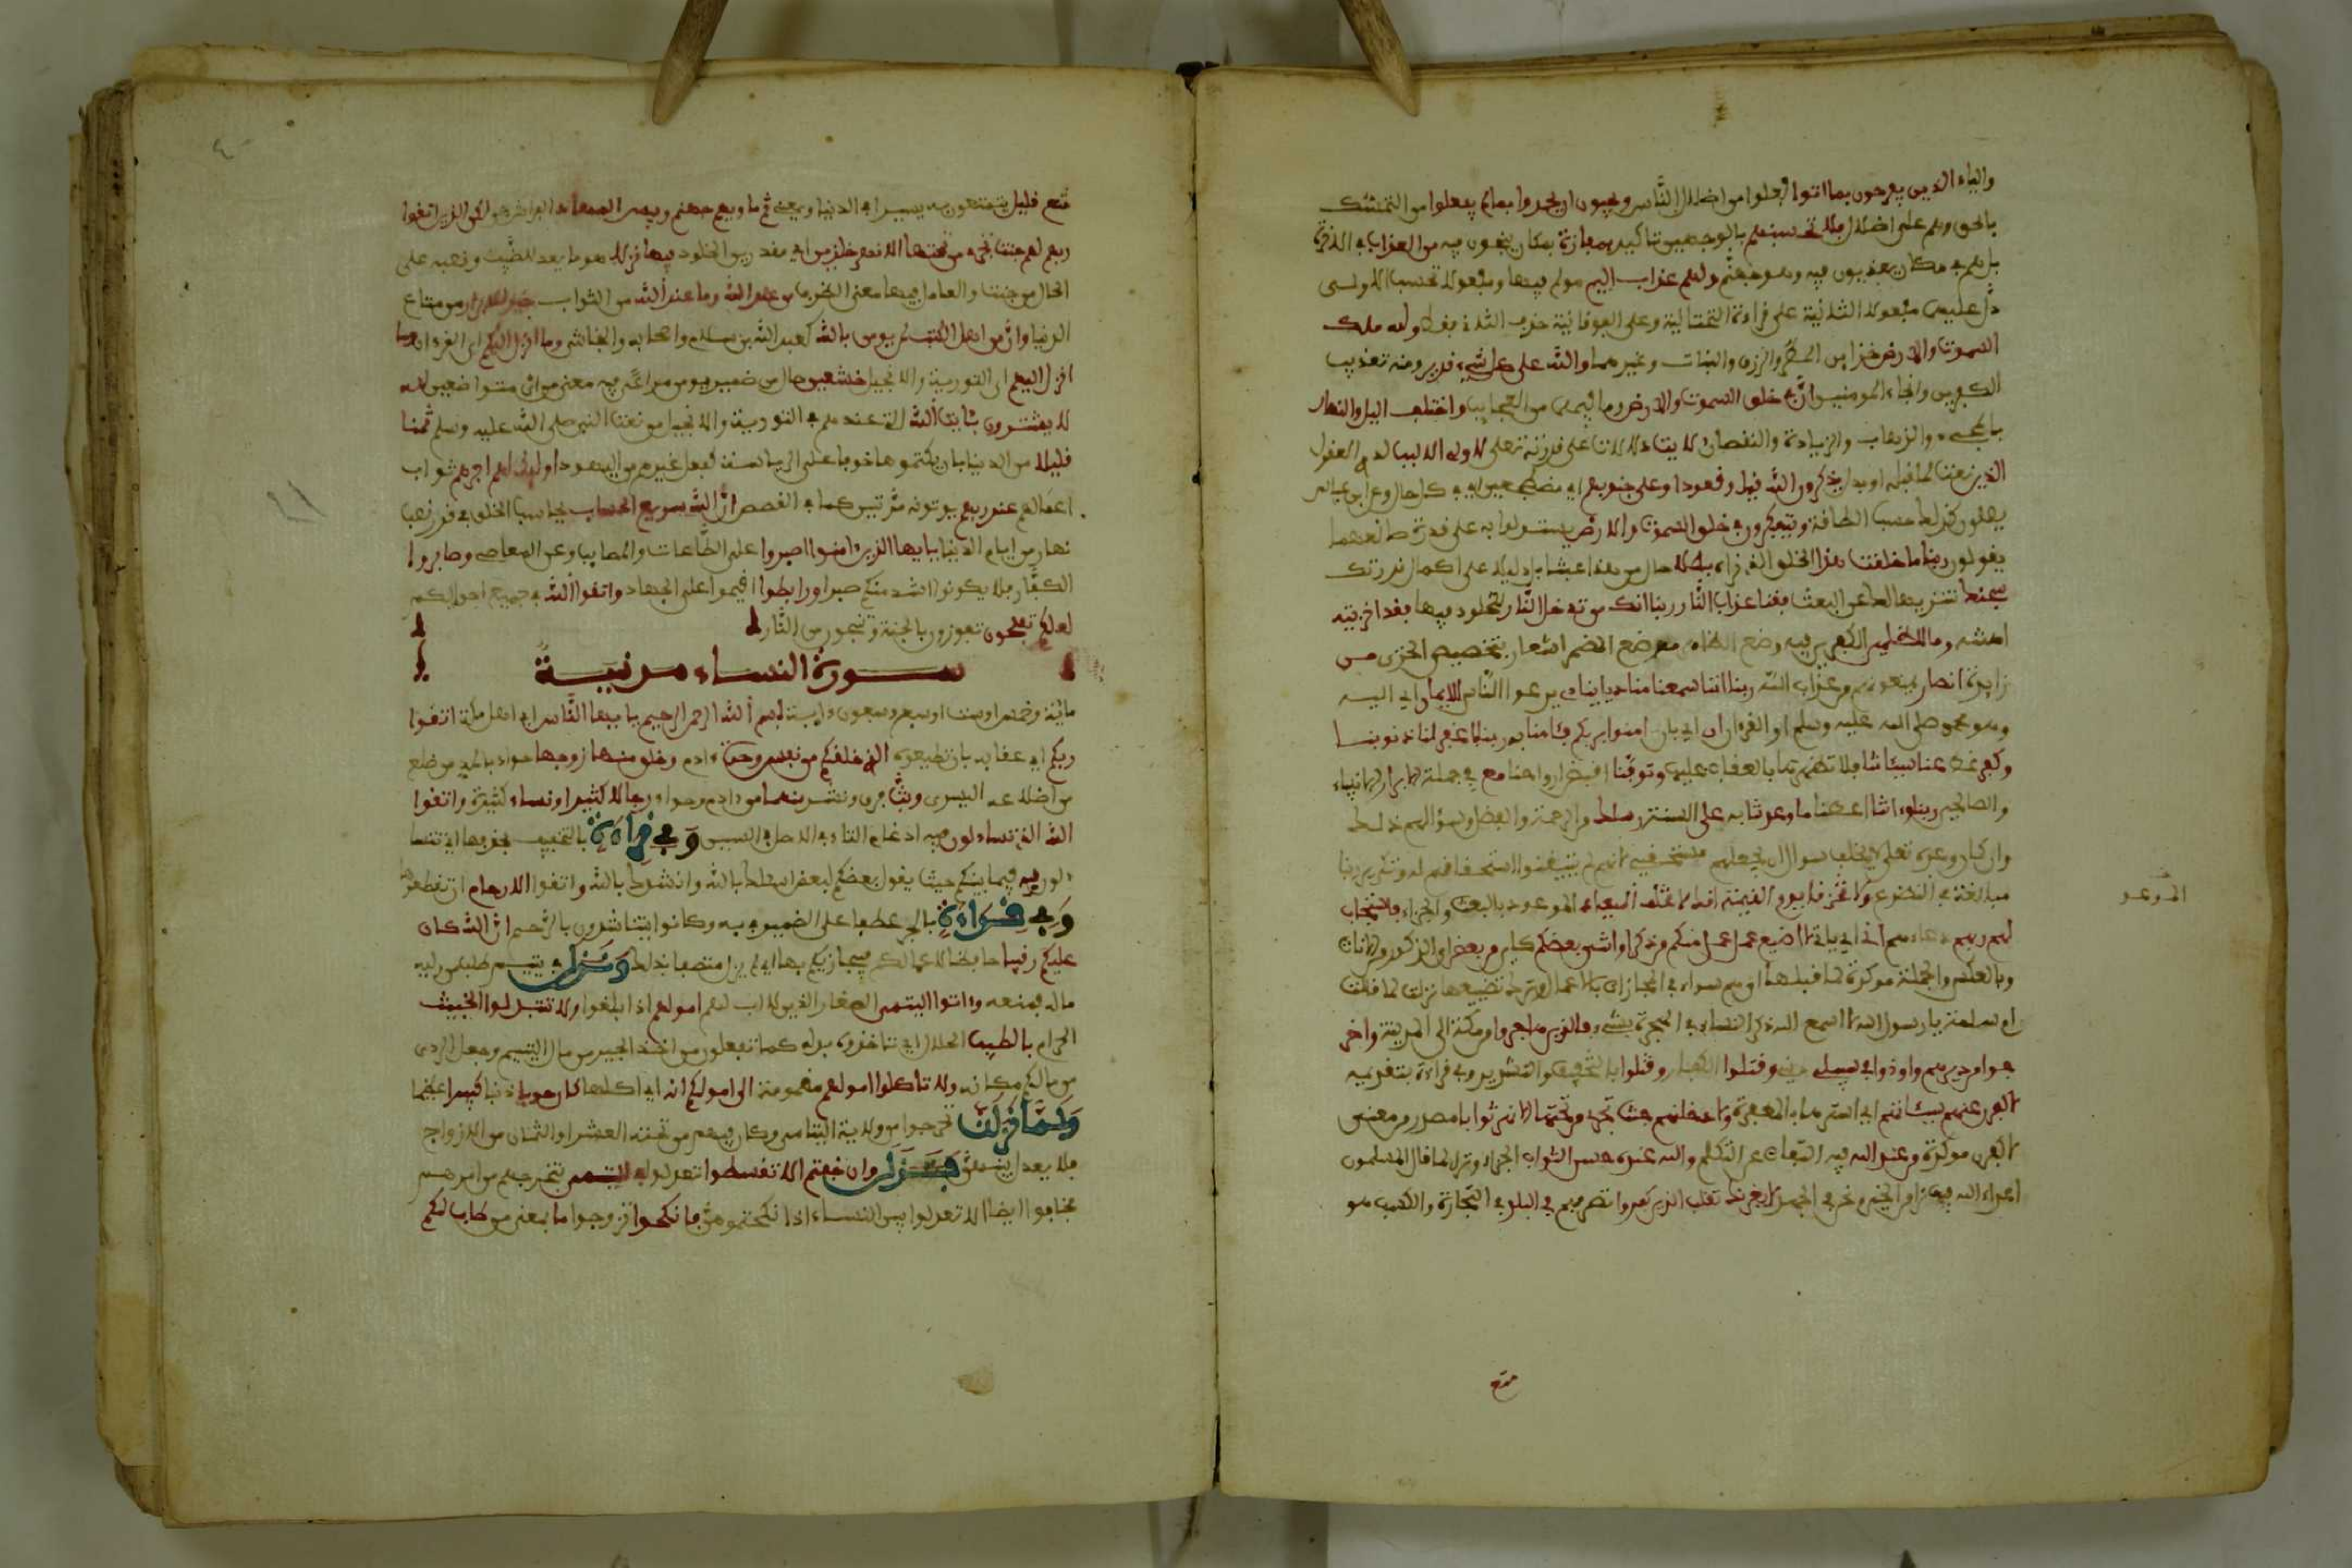 والياء الذين يفرحون بما اتوا فعلوا من اضلال النّاس ويحبون ان يحمدوا بما لم يفعلوا من التمسّك
بالحق وهم على اضلال فلا تحسبنهم بالوجهين تاكيد بمفازة بمكان ينجون فيه من العذاب في الاخرة
بل هم في مكان يعذبون فيه وهو جهنّم ولهم عذاب اليم مولم فيها ومفعولا تحسب الاولى
دلّ عليهما مفعولا الثانية على قراءة التحتانية وعلى الفوقانية حذف الثاني فقط ولله ملك
السموت والارض خزاين المطر والرزق والنبات وغيرهما والله على كل شيء قدير ومنه تعذيب
الكفرين وانجاء المومنين انّ في خلق السموت والارض وما فيهما من العجايب واختلف اليل والنهار
بالمجيء والذهاب والزيادة والنقصان لايت دلالات على قدرته تعلى لاولي الالبب لذوي العقول
الذين نعت لما قبله او بدل يذكرون الله قيما وقعودا وعلى جنوبهم اي مضطجعين اي في كل حال وعن ابن عباس
يصلون كذلك حسب الطاقة ويتفكرون في خلق السموت والارض يستدلوا به على قدرة صانعهما
يقولون ربنا ما خلقت هذا الخلق الذي نراه بطلا حال من هذا عبثا بل دليلا على كمال قدرتك
سبحنك تنزيها لك عن العبث فقنا عذاب النّار ربنا انك من تدخل النّار للخلود فيها فقد اخزيته
اهنته وما للظلمين الكفرين فيه وضع الظاهر موضع المضمر اشعار بتخصيص الخزي من
زايدة انصار يمنعونهم من عذاب الله ربنا اننا سمعنا مناديا ينادي يدعوا النّاس للايمان اي اليه
وهو محمد صلى الله عليه وسلم او القرءان ان اي بان امنوا بربكم فامنا به ربنا فاغفر لنا ذنوبنا
وكفر عنا سيئاتنا فلا تظهرها بالعقاب عليها وتوفّنا اقبض ارواحنا مع في جملة الابرار الانبياء
والصالحين ربنا واتنا اعطنا ما وعدتنا به على السنة رسلك من الرحمة والفضل وسؤالهم ذلك
وان كان وعده تعلى لا يخلف سوال ان يجعلهم مستحقيه لانهم لم يتيقنوا استحقاقهم له وتكرير ربنا
مبالغة في التضرع ولا تخزنا يوم القيمة انك لا تخلف الميعاد الموعود بالبعث والجزاء فاستجاب
الموعد
لهم ربهم دعاءهم اني اي باني لا اضيع عمل عمل منكم من ذكر او انثى بعضكم كاين من بعض اي الذكور من الاناث
وبالعكس والجملة موكدة لما قبلها اي هم سواء في المجازات بالاعمال وترك تضييعها نزلت لما قالت
ام سلمة يا رسول الله لا اسمع الله ذكر النساء في الهجرة بشيء فالذين هاجروا من مكة الى المدينة واخر
جوا من ديرهم واوذوا في سبيلي ديني وقتلوا الكفار وقتلوا بالتخفيف والتشديد وفي قراءة بتقديمه
لاكفرن عنهم سيئاتهم اي استرها بالمغفرة ولادخلنهم جنت تجري من تحتها الانهر ثوابا مصدر من معنى
لاكفرن موكد من عند الله فيه التفات عن التكلم والله عنده حسن الثواب الجزاء ونزل لما قال المسلمون
اعداء الله فيما نرى من الخير ونحن في الجهد لا يغرنك تقلب الذين كفروا تصرفهم في البلد في التجارة والكسب هو
متع
متع قليل يتمتعون به يسيرا في الدنيا ويفنى ثم ماويهم جهنم وبيس المهاد الفراش هي لكن الذين اتقوا
ربهم لهم جنت تجري من تحتها الانهر خلدين اي مقدرين الخلود فيها نزلا هو ما يعد للضيف ونصبه على
الحال من جنت والعامل فيها معنى الظرف من عند الله وما عند الله من الثواب خير للابرار من متاع
الدنيا وانّ من اهل الكتب لمن يومن بالله كعبد الله بن سلام واصحابه والنجاشي وما انزل اليكم اي القرءان وما
انزل اليهم اي التورية والانجيل خشعين حال من ضمير يومن مراعى فيه معنى من اي متواضعين لله
لا يشترون بئايت الله التي عندهم في التورية والانجيل من نعت النبي صلى الله عليه وسلم ثمنا
قليلا من الدنيا بان يكتموها خوفا على الرياسة كفعل غيرهم من اليهود اوليك لهم اجرهم ثواب
اعمالهم عند ربهم يوتونه مرّتين كما في القصص انّ الله سريع الحساب يحاسب الخلق في قدر نصف
نهار من ايام الدنيا يايها الذين امنوا اصبروا على الطّاعات والمصايب وعن المعاصي وصابروا
الكفّار فلا يكونوا اشد منكم صبرا ورابطوا اقيموا على الجهاد واتقوا الله في جميع احوالكم
لعلكم تفلحون تفوزون بالجنة وتنجون من النّار
سورة النساء مدنية
مائة وخمس او ست او سبع وسبعون ءاية بسم الله الرحمن الرحيم يا يها النّاس اي اهل مكة اتقوا
ربكم اي عقابه بان تطيعوه الذي خلقكم من نفس وحدة ءادم وخلق منها زوجها حواء بالمد من ضلع
من اضلاعه اليسرى وبثّ فرق ونشر منهما من ءادم وحواء رجالا كثيرا ونساء كثيرة واتقوا
الله الذي تساءلون فيه ادغام التاء في الاصل في السين وفي قراءة بالتخفيف بحذفها اي تتسا
ءلون به فيما بينكم حيث يقول بعضكم لبعض اسئلك بالله وانشدك بالله واتقوا الارحام ان تقطعوها
وفي قراءة بالجر عطفا على الضمير في به وكانوا يتناشدون بالرحم انّ الله كان
عليكم رقيبا حافظا لاعمالكم فيجازيكم بها اي لم يزل متصفا بذلك ونزل في يتيم طلب من وليه
ماله فمنعه وءاتوا اليتمى الصغار الذين لا اب لهم امولهم اذا بلغوا ولا تتبدلوا الخبيث
الحرام بالطيب الحلال اي تاخذوه بدله كما تفعلون من اخذ الجيد من مال اليتيم وجعل الردي
من مالكم مكانه ولا تاكلوا امولهم مضمومة الى امولكم انه اي اكلها كان حوبا ذنبا كبيرا عظيما
ولما نزلت تحرجوا من ولاية اليتامى وكان فيهم من تحته العشر او الثمان من الازواج
فلا يعدل بينهنّ فنزل وان خفتم الا تقسطوا تعدلوا في اليتمى فتحرجتم من امرهم
فخافوا ايضا الا تعدلوا بين النساء اذا نكحتموهنّ فانكحوا تزوجوا ما بمعنى من طاب لكم